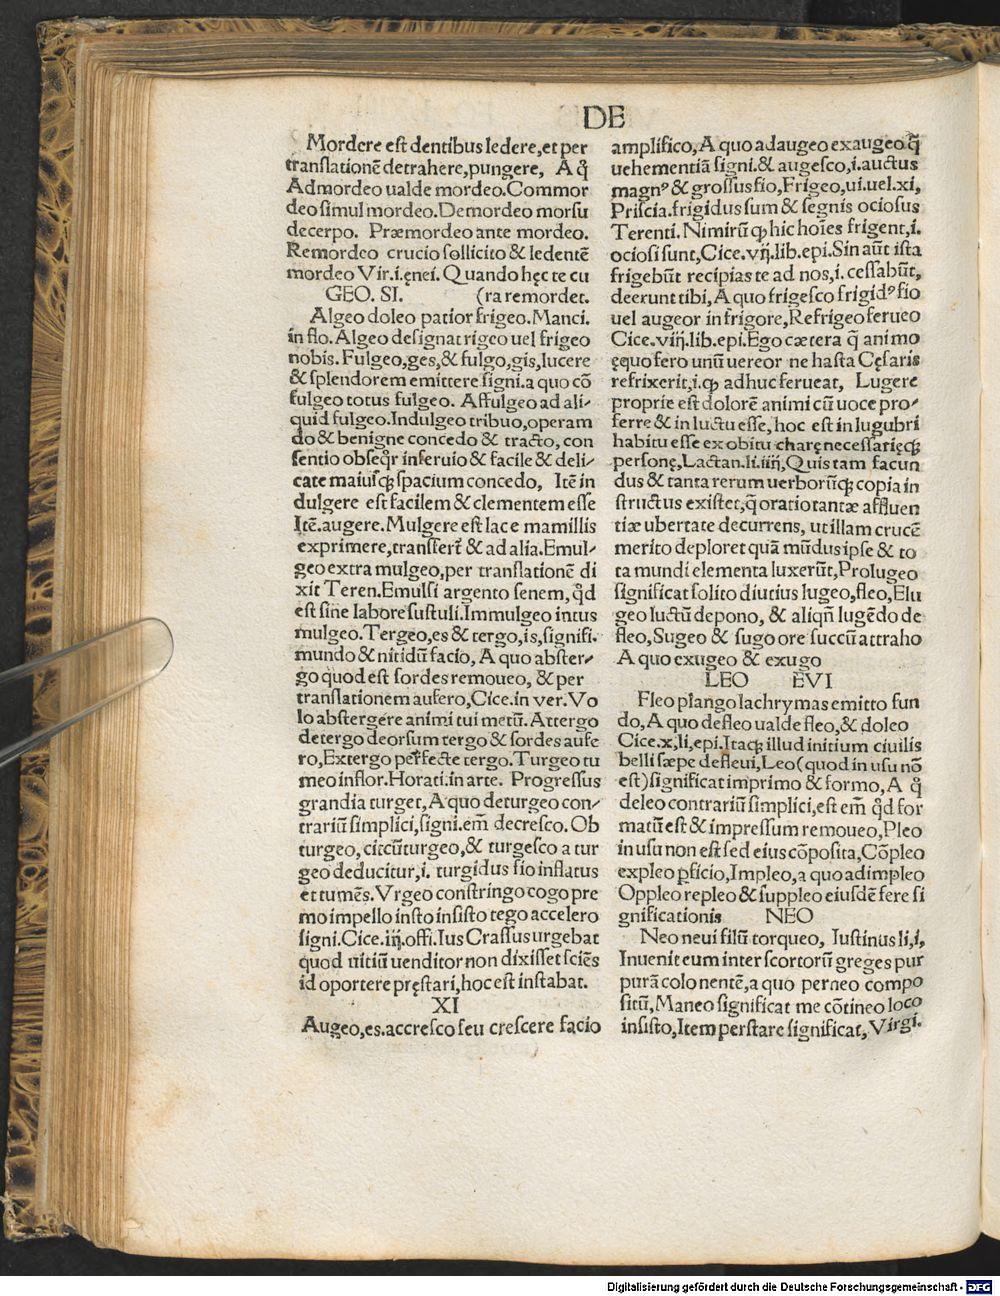 DE
Mordere est dentibus ledere, et per
translationē detrahere, pungere, A q̊
Admordeo ualde mordeo. Commor
deo simul mordeo. Demordeo morsu
decerpo. Præmordeo ante mordeo.
Remordeo crucio sollicito & ledentē
mordeo Vir. i. ęnei. Quando hęc te cu
GEO. SI. (ra remordet.
Algeo doleo patior frigeo. Manci.
in flo. Algeo designat rigeo uel frigeo
nobis. Fulgeo, ges, & fulgo, gis, lucere
& splendorem emittere signi. a quo cō
fulgeo totus fulgeo. Affulgeo ad ali-
quid fulgeo. Indulgeo tribuo, operam
do & benigne concedo & tracto, con
sentio obseq̃r inseruio & facile & deli-
cate maiusq̃ spacium concedo, Itē in
dulgere est facilem & clementem esse
Itē. augere. Mulgere est lac e mamillis
exprimere, transfert̃ & ad alia. Emul-
geo extra mulgeo, per translationē di
xit Teren. Emulsi argento senem, q̊d
est sine labore sustuli. Immulgeo intus
mulgeo. Tergeo, es & tergo, is, signifi.
mundo & nitidū facio, A quo abster-
go quod est sordes remoueo, & per
translationem aufero, Cice. in ver. Vo
lo abstergere animi tui metū. Attergo
detergo deorsum tergo & sordes aufe
ro, Extergo perfecte tergo. Turgeo tu
meo inflor. Horati. in arte. Progressus
grandia turget, A quo deturgeo con-
trariū simplici, signi. em̄ decresco. Ob
turgeo, circūturgeo, & turgesco a tur
geo deducitur, i. turgidus fio inflatus
et tumēs. Vrgeo constringo cogo pre
mo impello insto insisto tego accelero
signi. Cice. iij. offi. Ius Crassus urgebat
quod uitiū uenditor non dixisset sciēs
id oportere pręstari, hoc est instabat.
XI
Augeo, es. accresco seu crescere facio
amplifico, A quo adaugeo exaugeo q̃
uehementiā signi. & augesco, i. auctus
magnꝰ & grossus fio, Frigeo, ui. uel. xi,
Priscia. frigidus sum & segnis ociosus
Terenti. Nimirū q̃ hic hoīes frigent, i.
ociosi sunt, Cice. vij. lib. epi. Sin aūt ista
frigebūt recipias te ad nos, i. cessabūt,
deerunt tibi, A quo frigesco frigidꝰ fio
uel augeor in frigore, Refrigeo ferueo
Cice. viij. lib. epi. Ego cætera q̃ animo
ęquo fero unū uereor ne hasta Cęsaris
refrixerit, i. q̃ adhuc ferueat, Lugere
proprie est dolorē animi cū uoce pro-
ferre & in luctu esse, hoc est in lugubri
habitu esse ex obitu charę necessarięq̃
personę, Lactan. li. iiij, Quis tam facun
dus & tanta rerum uerborūq̃ copia in
structus existet, q̃ oratio tantæ affluen
tiæ ubertate decurrens, ut illam crucē
merito deploret quā mūdus ipse & to
ta mundi elementa luxerūt, Prolugeo
significat solito diutius lugeo, fleo, Elu
geo luctū depono, & aliqñ lugēdo de
fleo, Sugeo & sugo ore succū attraho
A quo exugeo & exugo
LEO EVI
Fleo plango lachrymas emitto fun
do, A quo defleo ualde fleo, & doleo
Cice. x, li, epi. Itaq̃ illud initium ciuilis
belli sæpe defleui, Leo (quod in usu nō
est) significat imprimo & formo, A q̊
deleo contrariū simplici, est em̄ q̊d for
matū est & impressum remoueo, Pleo
in usu non est sed eius cōposita, Cōpleo
expleo ꝑficio, Impleo, a quo adimpleo
Oppleo repleo & suppleo eiusdē fere si
gnificationis NEO
Neo neui filū torqueo, Iustinus li, i,
Inuenit eum inter scortorū greges pur
purā colo nentē, a quo perneo compo
sitū, Maneo significat me cōtineo loco
insisto, Item perstare significat, Virgi.
Digitalisierung gefördert durch die Deutsche Forschungsgemeinschaft - DFG